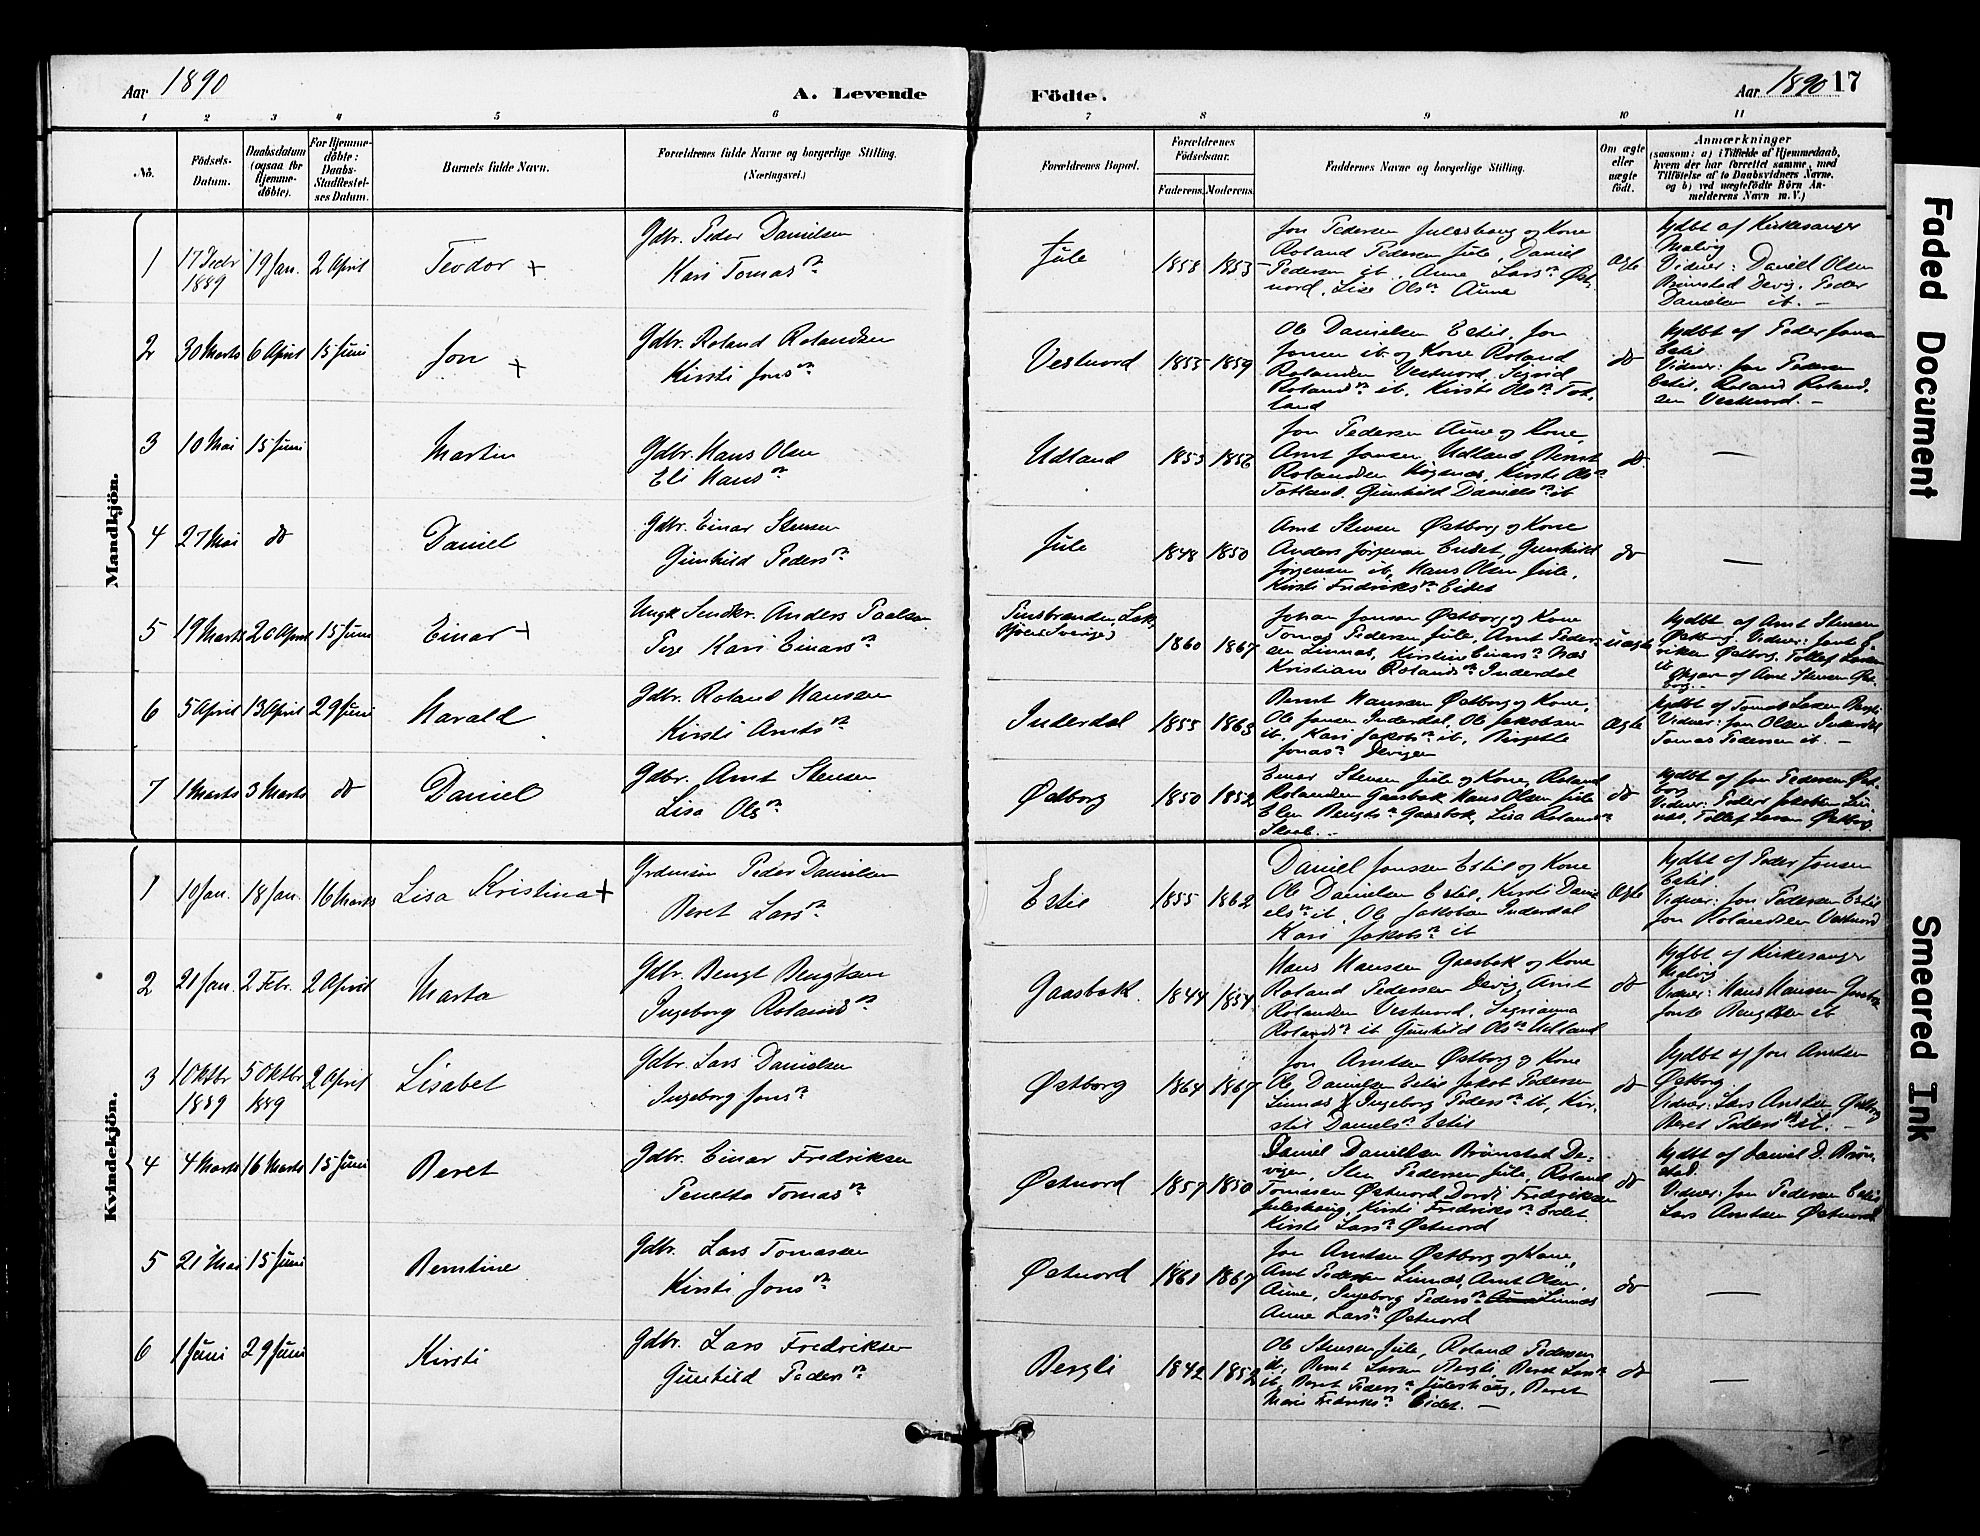 Aar 1890
A. Levende
Födte.
Aar 1890 17
1 2 3 4 5 6 7 8 9 10 11
No.
Födsels-
Datum.
Daabsdatum
(ogsaa for
Hjemme-
döbte).
For Hjemme-
döbte:
Daabs-
Stadfæstel-
ses Datum.
Barnets fulde Navn.
Forældrenes fulde Navne og borgerlige Stilling.
(Næringsvei.)
Forældrenes Bopæl.
Forældrenes
Födselsaar.
Faderens. Moderens.
Faddernes Navne og borgerlige Stilling.
Om ægte
eller
uægte
födt.
Anmærkninger
(saasom: a) i Tilfælde af Hjemmedaab,
hvem der har forrettet samme, med
Tilföielse af to Daabsvidners Navne,
og b) ved uægtefödte Börn An-
melderens Navn m. V.)
Mandkjön.
1 17 Decbr 1889 19 Jan. 2 April Teodor +
Gdbr. Peder Danielsen
Kari Tomasdr
Jule 1858 1853
Jon Pedersen Julesberg og Kone
Roland Pedersen Jule, Daniel
Pedersen ib, Anne Larsdr Øst-
nord, Lise Olsdr Aune
Ægte
Hjdbt af Kirkesanger
Malvig
Vidner: Daniel Olsen
Brønstad Devig, Peder
Danielsen ib. —
2 30 Marts 6 April 15 Juni Jon +
Gdbr. Roland Rolandsen
Kirsti Jonsdr
Vestnord 1855 1859
Ole Danielsen Estil, Jon
Jonsen ib og Kone Roland
Rolandsen Vestnord, Sigrid
Rolandsdr ib, Kirsti Olsdr Tot-
land
do
Hjdbt af Peder Jonsen
Estil
Vidner: Jon Pedersen
Estil, Roland Roland-
sen Vestnord. —
3 10 Mai 15 Juni Martin
Gdbr. Hans Olsen
Eli Hansdr
Udland 1853 1856
Jon Pedersen Aune og Kone,
Arnt Jonsen Udland, Bernt
Rolandsen Køgsnæs, Kirsti Olsdr
Totland, Gunhild Danielsdr ib
do
—
4 27 Mai do Daniel
Gdbr. Einar Stensen
Gunhild Pedersdr
Jule 1848 1850
Arnt Stensen Østborg og Kone
Anders Jørgensen Eidet, Gunhild
Jørgensen ib, Hans Olsen Jule,
Kirsti Fredriksdr Eidet
do
—
5 19 Marts 20 April 15 Juni Einar +
Ungk. Anders Paalsen
Pige Kari Einarsdr
Sverige)
1860 1867
Johan Jonsen Østborg og Kone
Tomas Pedersen Jule, Arnt Peder-
sen Linnæs, Kirstine Einarsdr Næs
Kristiane Rolandsdr Inderdal
uægte
Hjdbt af Arnt Stensen
Østborg. Vidner: E-
riksen Østborg. Tollef Larsen
ib
af Arnt Stensen Øst-
borg.—
6 5 April 13 April 29 Juni Harald
Gdbr. Roland Hansen
Kirsti Arntsdr
Inderdal 1855 1863
Bernt Hansen Østborg og Kone,
Ole Jonsen Inderdal, Ole Jakobsen
ib, Kari Jakobsdr ib, Birgitte
Jonasdr Devigen
Ægte
Hjdbt af Tomas Larsen Bergli
Vidner: Jon Olsen Inderdal
Tomas Pedersen ib. —
7 1 Marts 3 Marts do Daniel
Gdbr. Arnt Stensen
Lisa Olsdr
Østborg 1850 1852
Einar Stensen Jule og Kone, Roland
Rolandsen Gaasbak Hans Olsen Jule
Elen Bengtsdr Gaasbak, Lisa Rolandsdr
do
Hjdbt af Jon Pedersen Øst-
borg
Vidner: Peder Jakobsen Lin-
næs, Tollef Larsen Østborg.
Kvindekjön.
1 10 Jan. 18 Jan. 16 Marts Lisa Kristina +
Peder Danielsen
Beret Larsdr
Estil 1855 1862
Daniel Jonssen Estil og Kone
Ole Danielsen Estil, Kirsti Dani-
elsdr ib, Ole Jakobsen Inderdal
Kari Jakobsdr ib
Ægte
Hjdbt af Peder Jonsen
Estil
Vidner: Jon Pedersen Estil
Jon Rolandsen Vestnord
2 21 Jan. 2 Febr. 2 April Marta
Gdbr. Bengt Bengtsen
Ingeborg Rolandsdr
Gaasbak. 1844 1854
Hans Hansen Gaasbak og Kone
Roland Pedersen Devig, Arnt
Rolandsen Vestnord, Signianna
Rolandsdr ib Gunhild Olsdr Udland
do
Hjdbt af Kirkesanger
Malvig
Vidner: Hans Hansen Gaasbak
Bengtsen ib
3 1 Oktbr 1889 5 Oktbr 1889 2 April Lisabet
Gdbr. Lars Danielsen
Ingeborg Jonsdr
Østborg 1864 1867
Jon Arntsen Østborg og Kone
Ole Danielsen Estil Jakob Pedersen
Linnæs, Ingeborg Pedersdr ib, Kir-
sti Danielsdr Estil
do
Hjdbt af Jon Arntsen
Østborg.
Vidner: Lars Arntsen Østborg
Beret Pedersdr ib. —
4 4 Marts 16 Marts 15 Juni Beret
Gdbr. Einar Fredriksen
Penetta Tomasdr
Østnord 1859 1850
Daniel Danielsen Brønstad De-
vigen, Sten Pedersen Jule, Roland
Tomasen Østnord Dordi Fredriksen
Juleshaug, Kirsti Fredriksdr Eidet.
Kirsti Larsdr Østnord
do
Hjdbt af Daniel D. Brøn-
stad.
Vidner: Jon Pedersen Estil
Lars Arntsen Østnord
5 21 Mai 15 Juni Berntine
Gdbr. Lars Tomassen
Kirsti Jonsdr
Østnord 1861 1867
Jon Arntsen Østborg og Kone,
Arnt Pedersen Linnæs, Arnt Olsen
Aune, Ingeborg Pedersdr Linnæs
Anne Larsdr Østnord
do
—
6 1 Juni 29 Juni Kirsti
Gdbr. Lars Fredriksen
Gunhild Pedersdr
Bergli 1842 1852
Ole Stensen Jule, Roland Pedersen
ib, Bernt Larsen Bergli, Beret Larsdr
ib, Beret Pedersdr Juleshaug, Beret
Marie Fredriksdr Eidet. —
do
—
Faded Document
Smeared Ink